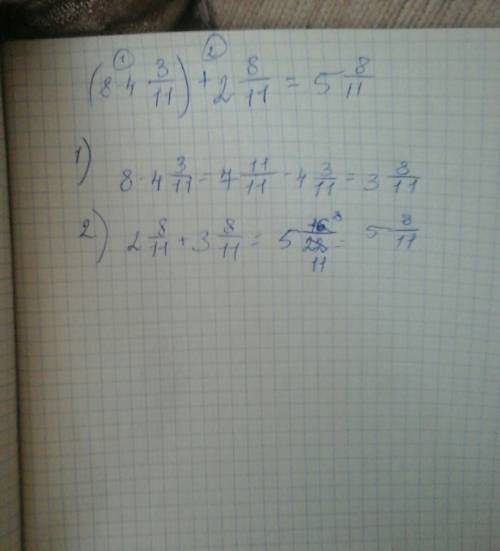 ① ②
(8 - 4 3/11) + 2 8/11 = 5 8/11
1) 8 - 4 3/11 = 7 11/11 - 4 3/11 = 3 8/11
2) 2 8/11 + 3 8/11 = 5 16/22 = 5 8/11
8
11